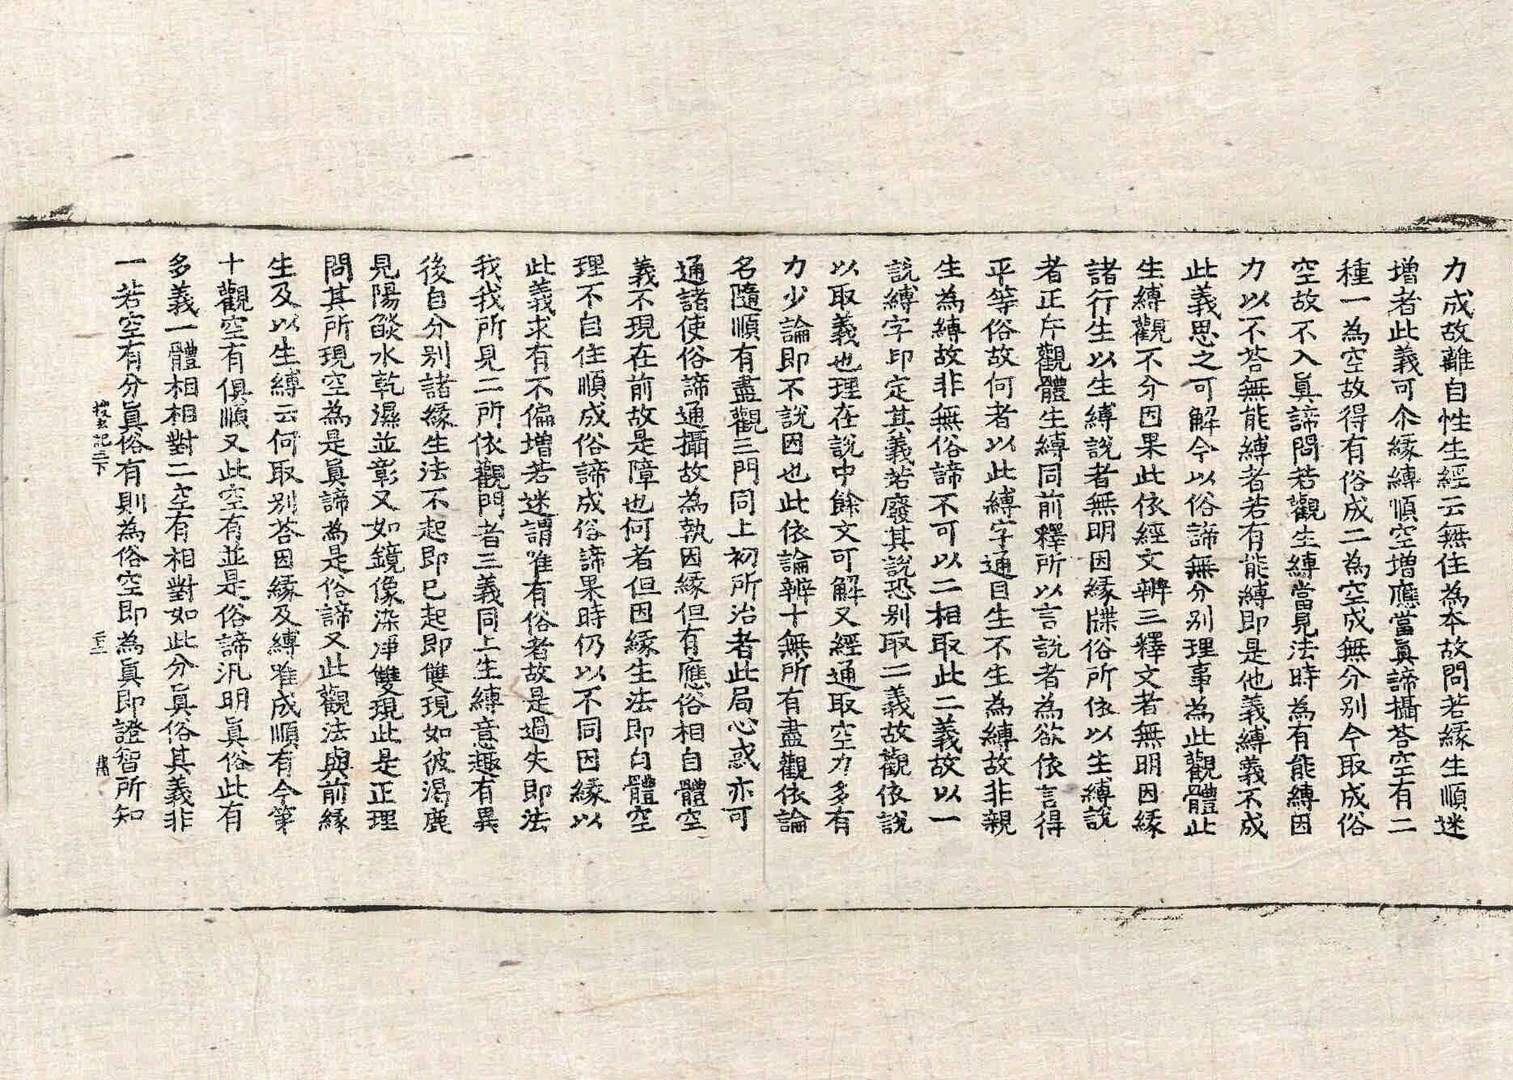 力成故離自性生經云無住為本故問若緣生順迷
增者此義可尒緣縛順空增應當眞諦攝荅空有二
種一為空故得有俗成二為空成無分別今取成俗
空故不入眞諦問若觀生縛當見法時為有能縛因
力以不荅無能縛者若有能縛即是他義縛義不成
此義思之可解今以俗諦無分別理事為此觀體此
生縛觀不分因果此依經文辨三釋文者無明因緣
諸行生以生縛說者無明因緣牒俗所依以生縛說
者正斥觀體生縛同前釋所以言說者為欲依言得
平等俗故何者以此縛字通目生不生為縛故非親
生為縛故非無俗諦不可以二相取此二義故以一
說縛字印定其義若廢其說恐別取二義故觀依說
以取義也理在說中餘文可解又經通取空力多有
力少論即不說因也此依論辨十無所有盡觀依論
名隨順有盡觀三門同上初所治者此局心惑亦可
通諸使俗諦通攝故為執因緣但有應俗相自體空
義不現在前故是障也何者但因緣生法即自體空
理不自住順成俗諦成俗諦果時仍以不同因緣以
此義求有不偏增若迷謂唯有俗者故是過失即法
我我所見二所依觀門者三義同上生縛意趣有異
後自分別諸緣生法不起即已起即雙現如彼渴鹿
見陽燄水乾濕並彰又如鏡像染凈雙現此是正理
問其所現空為是眞諦為是俗諦又此觀法與前緣
生及以生縛云何取別荅因緣及縛唯成順有今第
十觀空有俱順又此空有並是俗諦汎明眞俗此有
多義一體相相對二空有相對如此分眞俗其義非
一若空有分眞俗有則為俗空即為眞即證智所知
搜玄記三下